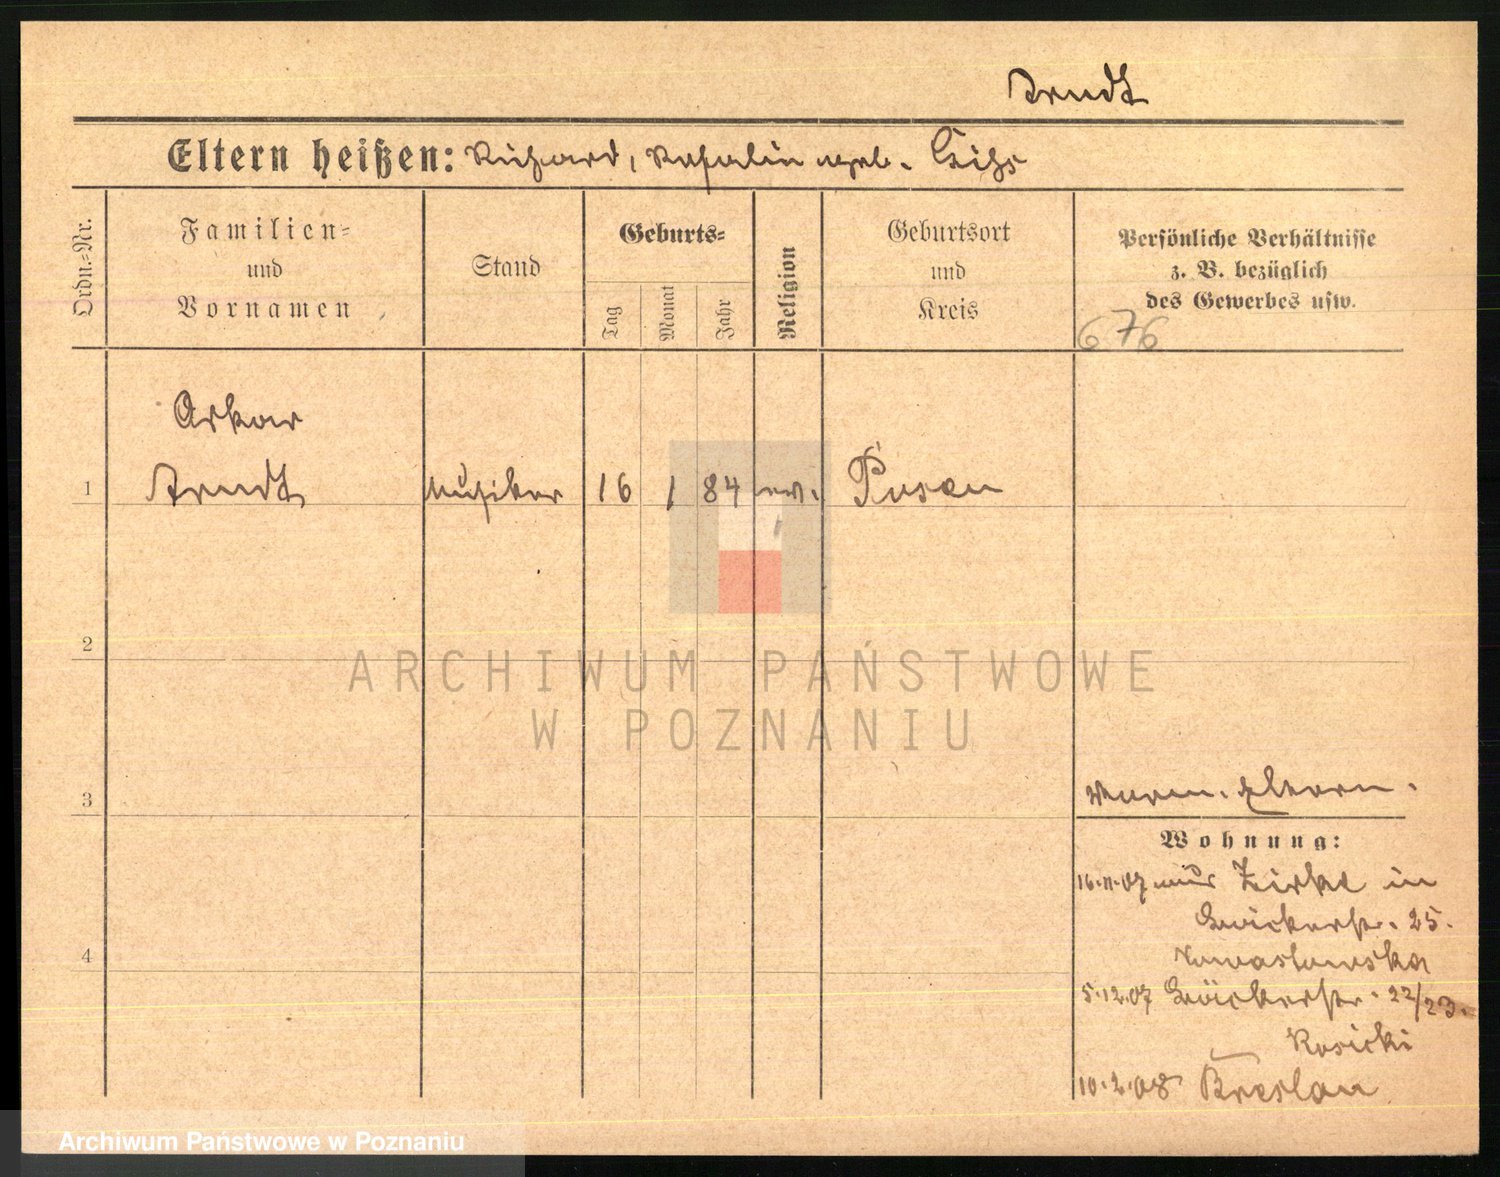 Arndt
Eltern heißen: Richard, Rosalin geb.
Ordn.-Nr.
Familien-
und
Vornamen
Stand
Geburts-
Tag
Monat
Jahr
Religion
Geburtsort
und
Kreis
Persönliche Verhältnisse
z. B. bezüglich
des Gewerbes usw.
676
Oskar
1 Arndt Musiker 16 1 84 ev. Posen
2
ARCHIWUM PAŃSTWOWE
W POZNANIU
3
Eltern.
Wohnung:
16.11.07 aus Zirke in
Bäckerstr. 25.
Nowastowska
5.12.07 Bäckerstr. 22/23.
Rosicki
4
10.2.08 Breslau
Archiwum Państwowe w Poznaniu